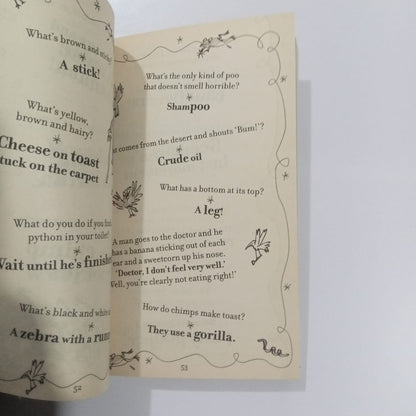 What's brown and sticky?
A stick!
What's yellow,
brown and hairy?
Cheese on toast
stuck on the carpet
What do you do if you find
python in your toilet?
Wait until he's finished
What's black and white
A zebra with a
52
What's the only kind of poo
that doesn't smell horrible?
Shampoo
comes from the desert and shouts 'Bum!'?
Crude oil
What has a bottom at its top?
A leg!
A man goes to the doctor and he
has a banana sticking out of each
ear and a sweetcorn up his nose.
'Doctor, I don't feel very well.'
'Well, you're clearly not eating right!'
How do chimps make toast?
They use a gorilla.
53